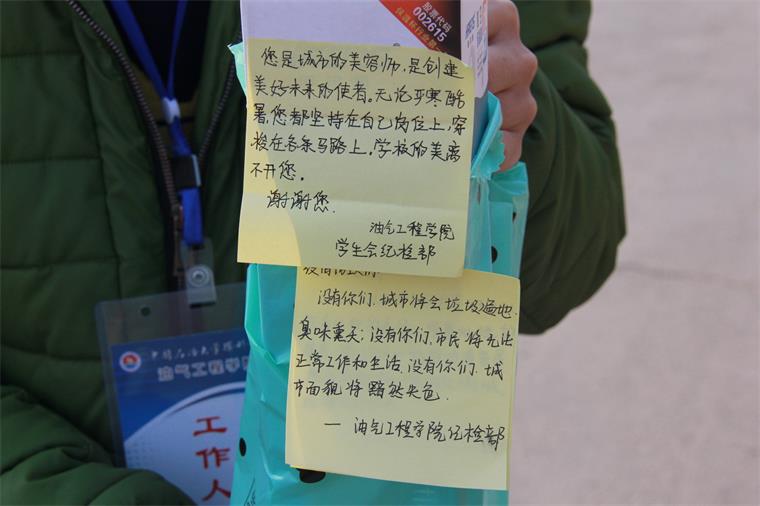 股票代码
002615
您是城市的美容师,是创建
美好未来的使者。无论严寒酷
暑,您都坚持在自己岗位上,穿
梭在各条马路上,学校的美离
不开您。
谢谢您.
油气工程学院
学生会纪检部
没有你们,城市将会垃圾遍地.
臭味熏天;没有你们,市民将无法
正常工作和生活.没有你们.城
市面貌将黯然失色.
— 油气工程学院纪检部
中国石油大学胜利
油气工程学院
工
作
人